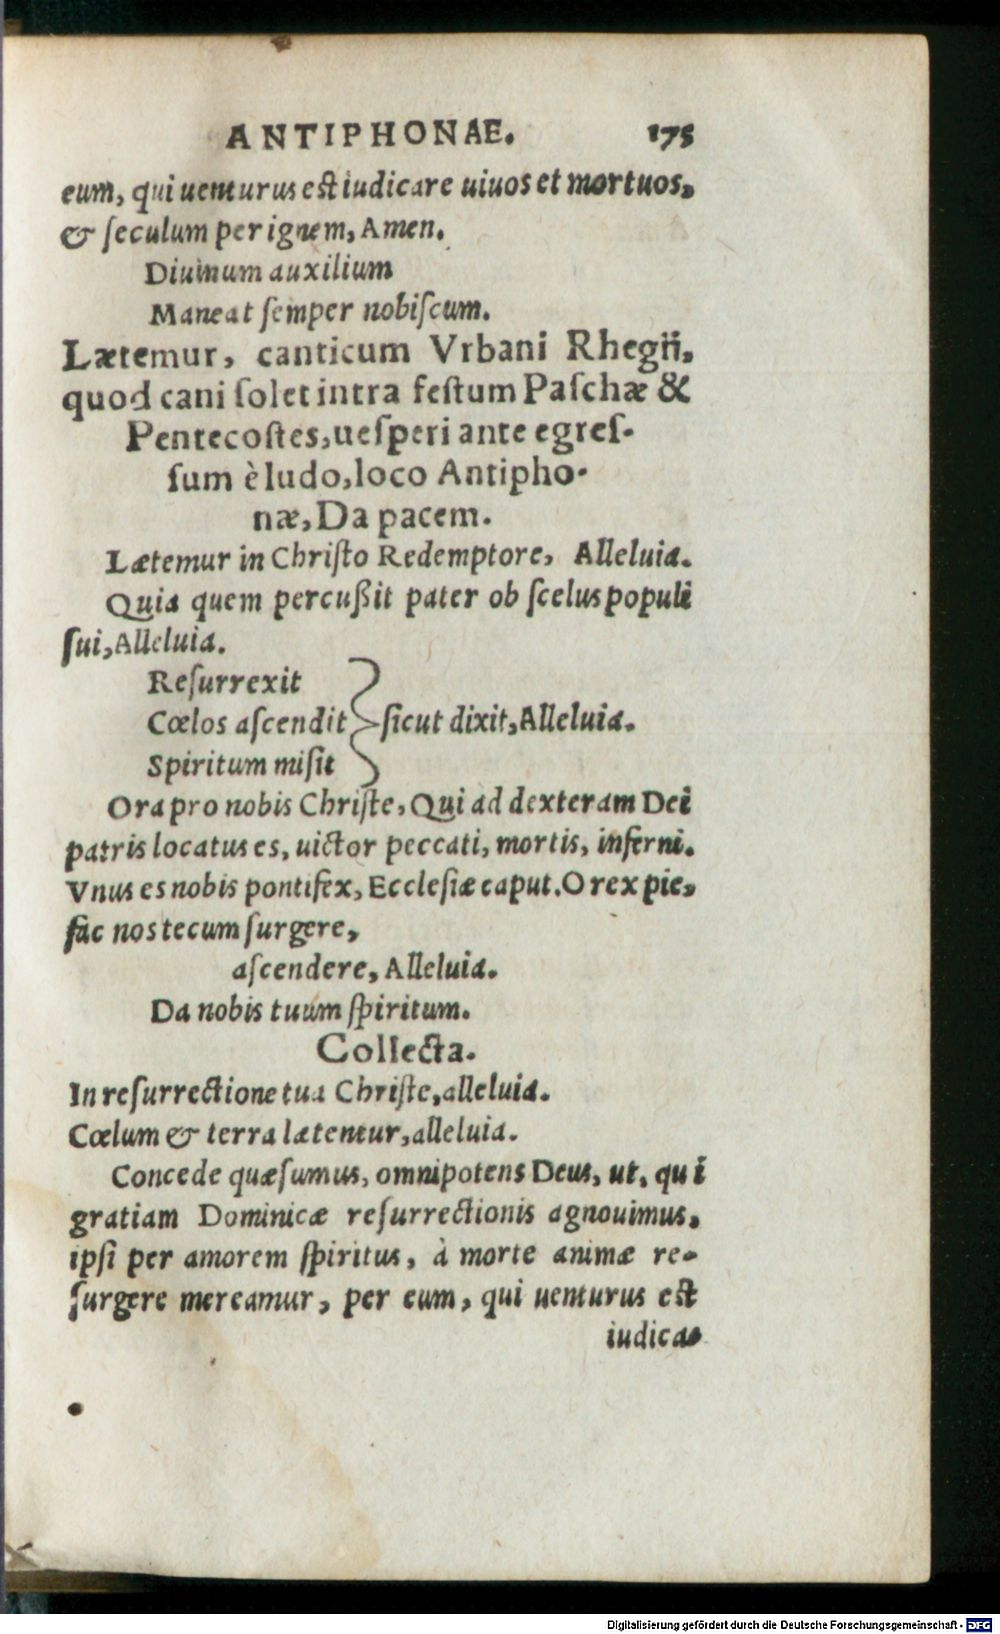 ANTIPHONAE. 175
eum, qui uenturus est iudicare uiuos et mortuos,
& ſeculum per ignem, Amen.
Diuinum auxilium
Maneat ſemper nobiſcum.
Lætemur, canticum Vrbani Rhegij,
quod cani ſolet intra feſtum Paſchæ &
Pentecoſtes, ueſperi ante egreſ-
ſum è ludo, loco Antipho-
næ, Da pacem.
Lætemur in Chriſto Redemptore, Alleluia.
Quia quem percußit pater ob ſcelus populi
ſui, Alleluia.
Reſurrexit
Cœlos aſcendit ſicut dixit, Alleluia.
Spiritum miſit
Ora pro nobis Chriſte, Qui ad dexteram Dei
patris locatus es, uictor peccati, mortis, inferni.
Vnus es nobis pontifex, Eccleſiæ caput. O rex pie,
fac nos tecum ſurgere,
aſcendere, Alleluia.
Da nobis tuum ſpiritum.
Collecta.
In reſurrectione tua Chriſte, alleluia.
Cœlum & terra lætentur, alleluia.
Concede quæſumus, omnipotens Deus, ut, qui
gratiam Dominicæ reſurrectionis agnouimus,
ipſi per amorem ſpiritus, à morte animæ re-
ſurgere mereamur, per eum, qui uenturus eſt
iudica-
Digitalisierung gefördert durch die Deutsche Forschungsgemeinschaft - DFG